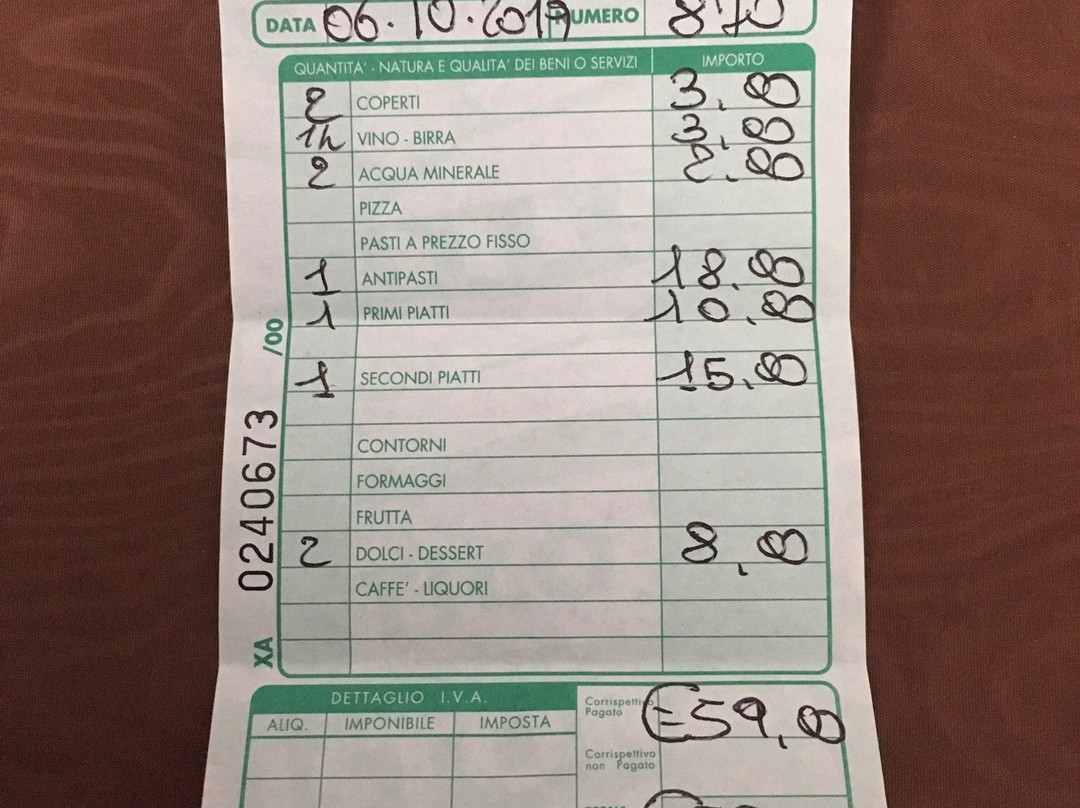 DATA 06.10.2019 NUMERO 870
QUANTITA' - NATURA E QUALITA' DEI BENI O SERVIZI IMPORTO
2 COPERTI 3,00
VINO - BIRRA 3,00
2 ACQUA MINERALE 2,00
PIZZA
PASTI A PREZZO FISSO
1 ANTIPASTI 18,00
1 PRIMI PIATTI 10,00
1 SECONDI PIATTI 15,00
CONTORNI
FORMAGGI
FRUTTA
2 DOLCI - DESSERT 8,00
CAFFE' - LIQUORI
XA 0240673 /00
DETTAGLIO I.V.A.
ALIQ. IMPONIBILE IMPOSTA
Corrispettivo
Pagato
€59,00
Corrispettivo
non Pagato